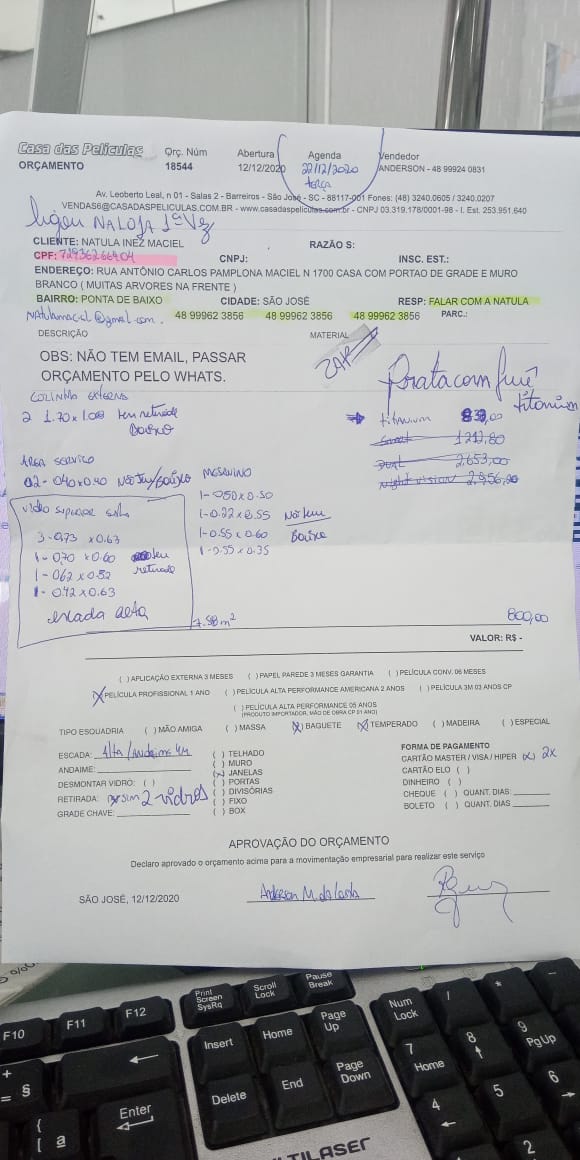 Casa das Películas
ORÇAMENTO
Orç. Núm
18544
Abertura
12/12/2020
Agenda
22/12/2020
terça
Vendedor
ANDERSON - 48 99924 0831
Av. Leoberto Leal, n 01 - Salas 2 - Barreiros - São José - SC - 88117-001 Fones: (48) 3240.0605 / 3240.0207
VENDAS6@CASADASPELICULAS.COM.BR - www.casadaspeliculas.com.br - CNPJ 03.319.178/0001-98 - I. Est. 253.951.640
ligou NA LOJA 1ª Vez
CLIENTE: NATULA INEZ MACIEL RAZÃO S:
CPF: 72936266904 CNPJ: INSC. EST.:
ENDEREÇO: RUA ANTÔNIO CARLOS PAMPLONA MACIEL N 1700 CASA COM PORTAO DE GRADE E MURO
BRANCO ( MUITAS ARVORES NA FRENTE )
BAIRRO: PONTA DE BAIXO CIDADE: SÃO JOSÉ RESP: FALAR COM A NATULA
48 99962 3856 48 99962 3856 48 99962 3856 PARC.:
DESCRIÇÃO MATERIAL
OBS: NÃO TEM EMAIL, PASSAR
ORÇAMENTO PELO WHATS.
ZAP
Prata com fumê
titanium
COZINHA EXTERNA
2 1.70 x 1.00 tem retirada
baixo
titanium 830,00
2.653,00
Night vision 2.956,90
ÁREA SERVIÇO
02 - 040 x 0.40 NÃO TEM/BAIXO
MESANINO
1 - 050 x 0.50
1 - 0.22 x 0.55 Não tem
1 - 0.55 x 0.60 Baixo
1 - 0.55 x 0.35
Vidro superior sala
3 - 0.73 x 0.63
1 - 0,70 x 0.60 tem
1 - 062 x 0.52 retirada
1 - 0.42 x 0.63
escada alta
7.58 m²
800,00
VALOR: R$ -
( ) APLICAÇÃO EXTERNA 3 MESES ( ) PAPEL PAREDE 3 MESES GARANTIA ( ) PELÍCULA CONV. 06 MESES
(X) PELÍCULA PROFISSIONAL 1 ANO ( ) PELÍCULA ALTA PERFORMANCE AMERICANA 2 ANOS ( ) PELÍCULA 3M 03 ANOS CP
( ) PELÍCULA ALTA PERFORMANCE 05 ANOS
(PRODUTO IMPORTADOR, MÃO DE OBRA CP 01 ANO)
TIPO ESQUADRIA ( ) MÃO AMIGA ( ) MASSA (X) BAGUETE (X) TEMPERADO ( ) MADEIRA ( ) ESPECIAL
ESCADA: Alta/Andaime 4M
ANDAIME:
DESMONTAR VIDRO: ( )
RETIRADA: (X) SIM 2 vidros
GRADE CHAVE:
( ) TELHADO
( ) MURO
(X) JANELAS
( ) PORTAS
( ) DIVISÓRIAS
( ) FIXO
( ) BOX
FORMA DE PAGAMENTO
CARTÃO MASTER / VISA / HIPER (X) 2x
CARTÃO ELO ( )
DINHEIRO ( )
CHEQUE ( ) QUANT. DIAS:
BOLETO ( ) QUANT. DIAS
APROVAÇÃO DO ORÇAMENTO
Declaro aprovado o orçamento acima para a movimentação empresarial para realizar este serviço
SÃO JOSÉ, 12/12/2020
Anderson M da Costa
Print Screen SysRq
Scroll Lock
Pause Break
F10 F11 F12
Insert Home Page Up
Num Lock / * -
Delete End Page Down
7 Home 8 9 PgUp
Enter
4 5 6
2
+ = §
{ [ ª
MULTILASER